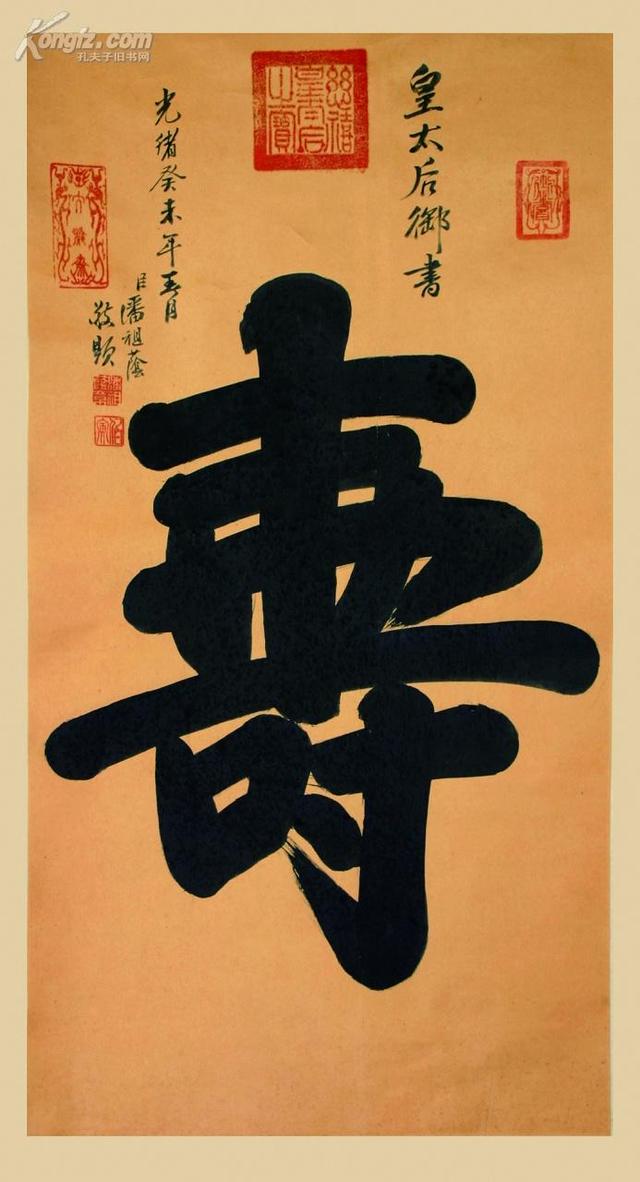 Kongfz.com
孔夫子旧书网
皇太后御书
慈禧皇太后之寶
壽
光緒癸未年春月
臣潘祖蔭
敬題